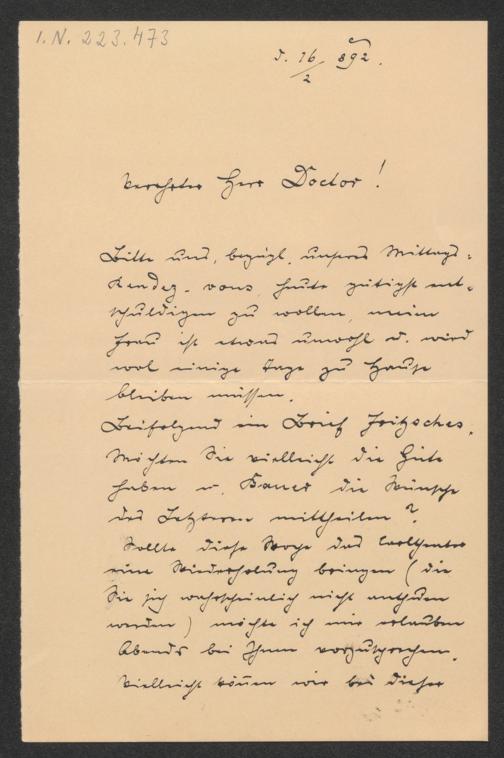 I.N. 223.473
d. 16/2 892.
Verehrter Herr Doctor!
Bitte uns, bezügl. unseres Mittags-
Rendez-vous, heute gütigst ent-
schuldigen zu wollen, meine
Frau ist etwas unwohl u. wird
wol einige Tage zu Hause
bleiben müssen.
Beifolgend ein Brief Fritzsches.
Möchten Sie vielleicht die Güte
haben u. Bauer die Wünsche
des Letzteren mittheilen?
Sollte diese Woche das Carltheater
eine Wiederholung bringen (die
Sie sich wahrscheinlich nicht anthuen
werden) möchte ich mir erlauben
Abends bei Ihnen vorzusprechen.
Vielleicht können wir bei dieser